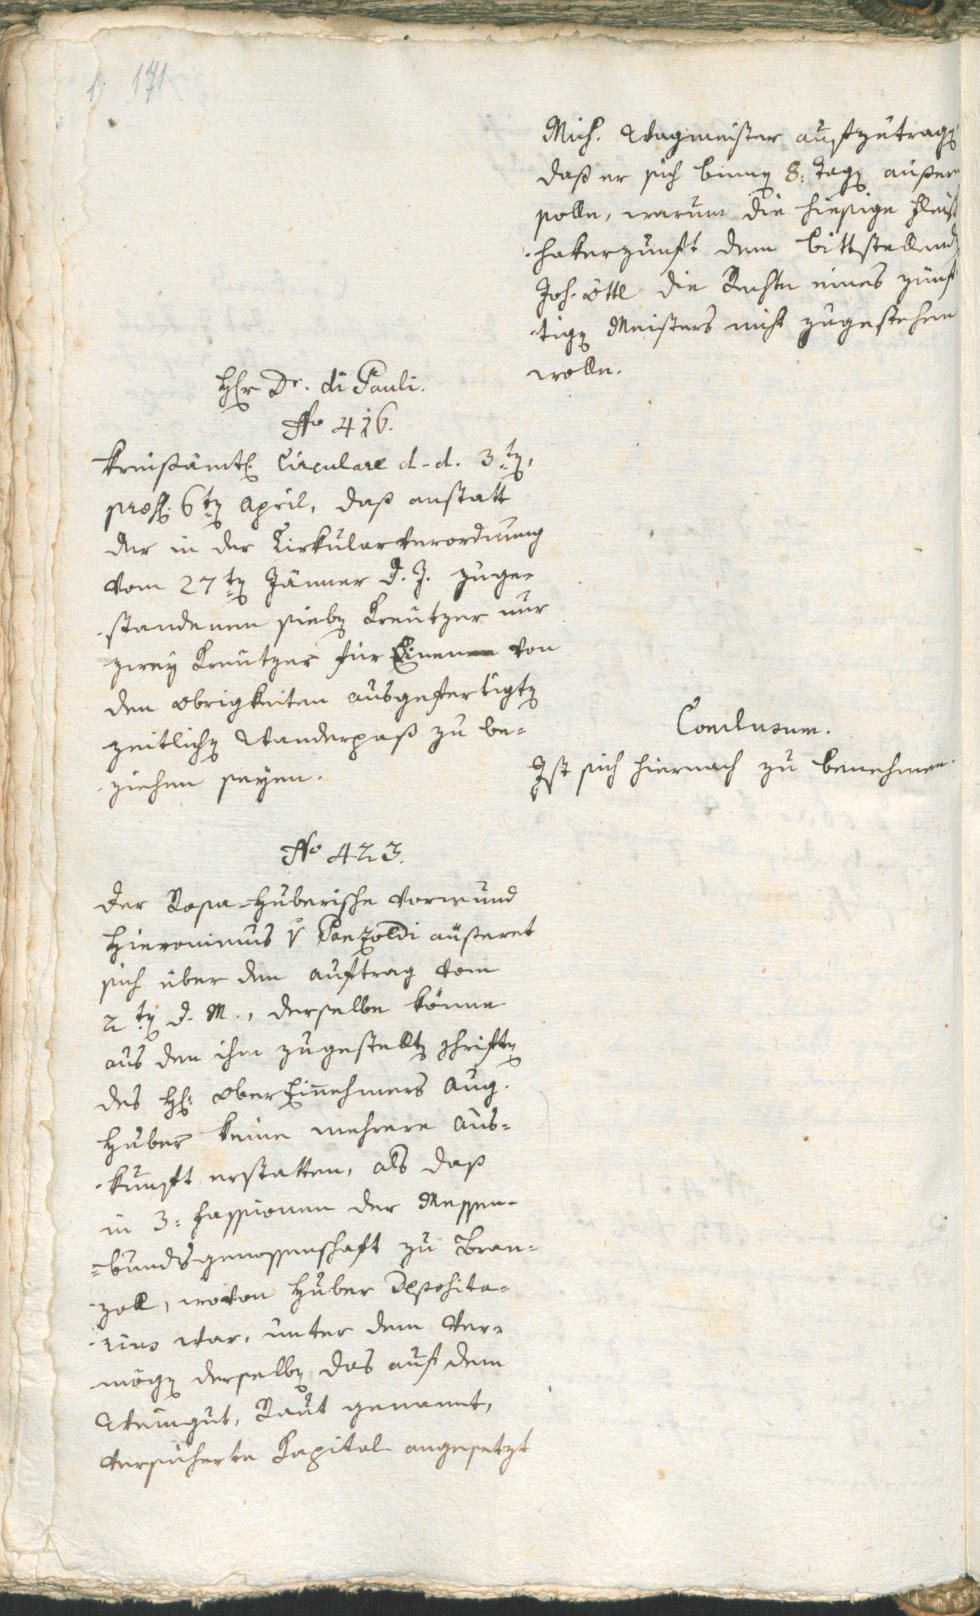 171
Mich. Wagmeister aufzutragen
daß er sich binnen 8: Tagen äußern
solle, warum die hiesige Fleisch
hakerzunft dem bittstellenden
Joh. Öttl die Rechte eines zünf
tigen Meisters nicht zugestehen
wolle.
Hr Dr. di Pauli.
No 416.
Kreisämtl. Circulare d-d. 3ten,
prӕs. 6ten April, daß anstatt
der in der Cirkularverordnung
vom 27ten Jänner d. J. zuge-
standenen sieben Kreutzer nur
zwey Kreutzer für Einen von
den Obrigkeiten ausgefertigten
zeitlichen Wanderpaß zu be-
ziehen seyen.
Conclusum.
Ist sich hiernach zu benehmen.
No 423.
Der Rosa-Huberische Vormund
Hieronimus v Panzoldi äußeret
sich über den Auftrag vom
2ten d. M., derselbe könne
aus den ihm zugestellten Schriften
des H: Ober Einnehmers Aug.
Huber keine mehrere Aus-
kunft erstatten, als daß
in 3: Fassionen der Messen-
bundsgenossenschaft zu Bran-
zoll, wovon Huber Deposita-
rius war, unter dem Ver-
mögen derselben das auf dem
Weingut, Raut genannt,
versicherte Kapital angesetzt